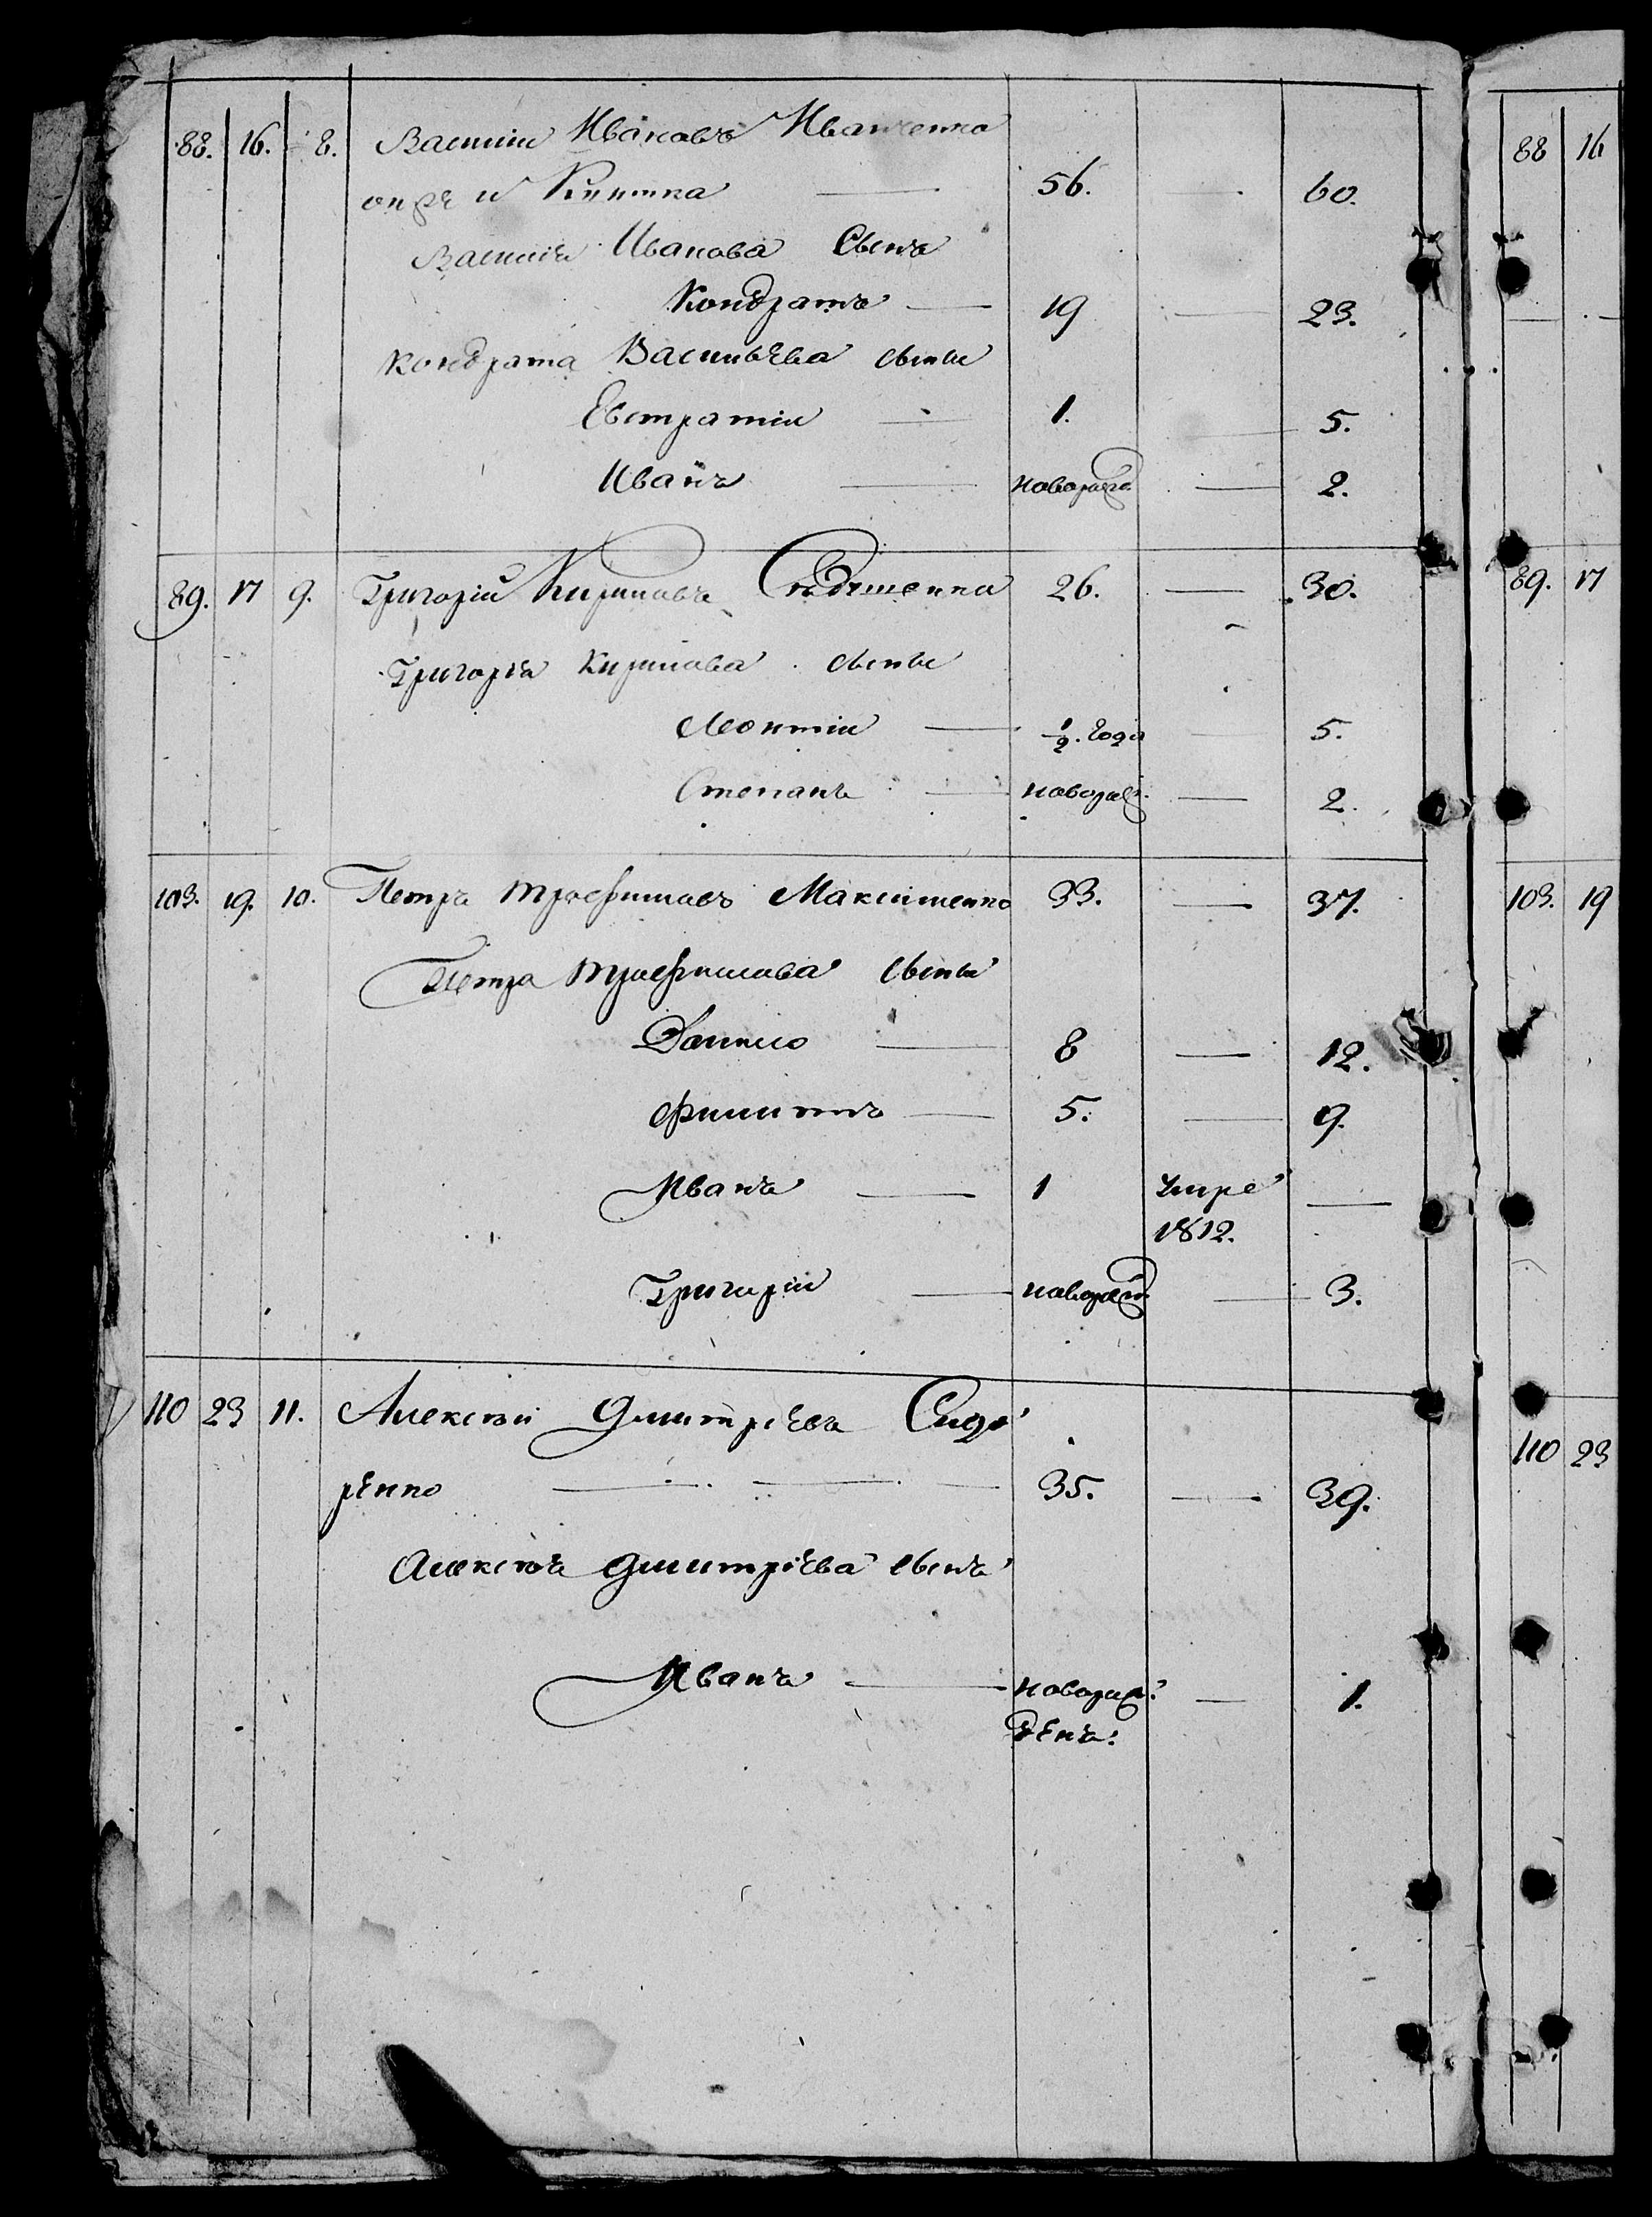 88. 16. 8. Василий Ивановъ Иванченко
онъ же и Китка — 56. — 60.
Василія Иванова Сынъ
Кондратъ — 19 — 23.
Кондрата Васильева сыны
Евстратій — 1. — 5.
Иванъ — новорож — 2.
89. 17 9. Григорій Кириловъ 26. — 30.
Григорія Кирилова сыны
Леонтій — 1/2. года — 5.
Степанъ — новорож. — 2.
103. 19. 10. Петръ Трофимовъ Максименко 33. — 37.
Петра Трофимова сыны
Данило — 8 — 12.
Филипъ — 5. — 9.
Иванъ — 1 умре —
1812.
Григорій — новорож — 3.
110 23 11. Алексѣй Дмитріевъ Сидо
ренко — 35. — 39.
Алексѣя Дмитріева сынъ
Иванъ — новорож — 1.
денъ.
88 16
89. 17
103. 19
110 23